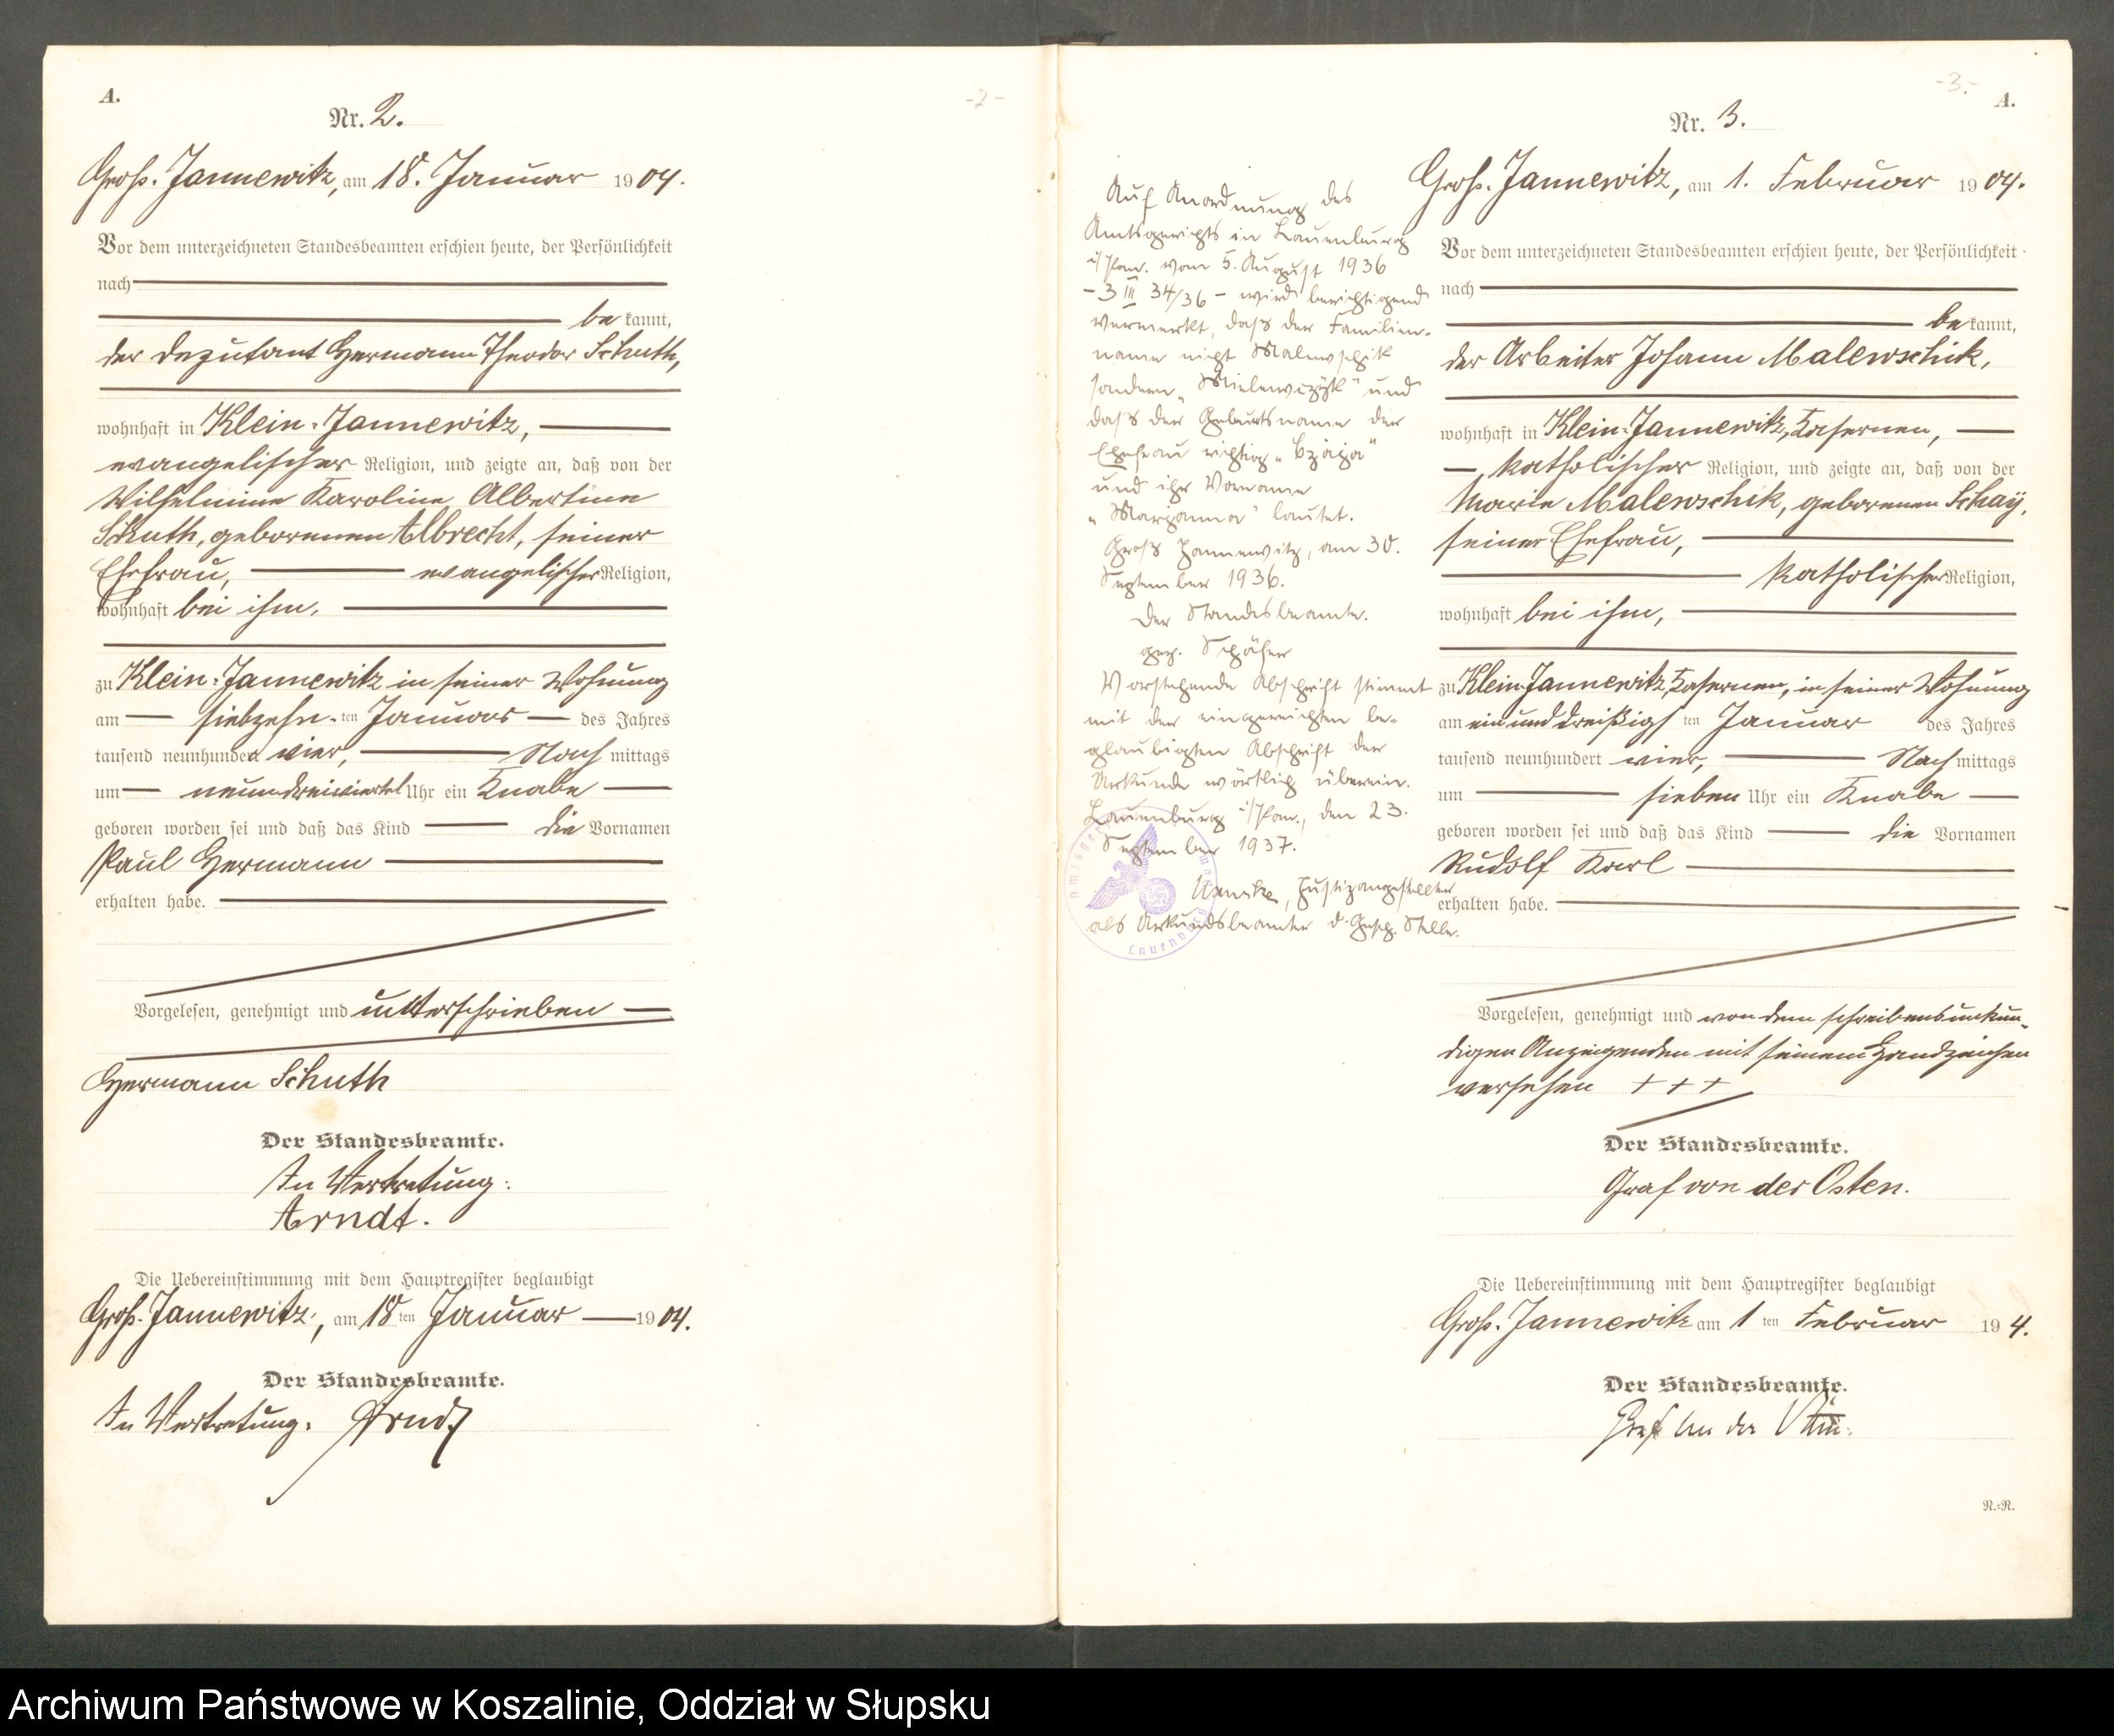 A.
-2-
Nr. 2.
Groß-Jannewitz, am 18. Januar 1904.
Vor dem unterzeichneten Standesbeamten erschien heute, der Persönlichkeit
nach
be kannt,
der Deputant Hermann Theodor Schuth,
wohnhaft in Klein-Jannewitz,
evangelischer Religion, und zeigte an, daß von der
Wilhelmine Karoline Albertine
Schuth, geborenen Albrecht, seiner
Ehefrau, evangelischer Religion,
wohnhaft bei ihm,
zu Klein-Jannewitz in seiner Wohnung
am siebzehn-ten Januar des Jahres
tausend neunhundert vier, Nach mittags
um neundreiviertel Uhr ein Knabe
geboren worden sei und daß das Kind die Vornamen
Paul Hermann
erhalten habe.
Vorgelesen, genehmigt und unterschrieben
Hermann Schuth
Der Standesbeamte.
In Vertretung:
Arndt.
Die Uebereinstimmung mit dem Hauptregister beglaubigt
Groß-Jannewitz, am 18ten Januar 1904.
Der Standesbeamte.
In Vertretung: Arndt
-3.-
A.
Nr. 3.
Groß-Jannewitz, am 1. Februar 1904.
Vor dem unterzeichneten Standesbeamten erschien heute, der Persönlichkeit
nach
be kannt,
der Arbeiter Johann Malewschik,
wohnhaft in Klein-Jannewitz, Kasernen,
katholischer Religion, und zeigte an, daß von der
Marie Malewschik, geborenen Schay,
seiner Ehefrau,
katholischer Religion,
wohnhaft bei ihm,
zu Klein-Jannewitz, Kasernen, in seiner Wohnung
am einunddreißigsten Januar des Jahres
tausend neunhundert vier, Nach mittags
um sieben Uhr ein Knabe
geboren worden sei und daß das Kind die Vornamen
Rudolf Karl
erhalten habe.
Vorgelesen, genehmigt und von dem schreibensunkun-
digen Anzeigenden mit seinem Handzeichen
versehen + + +
Der Standesbeamte.
Graf von der Osten.
Die Uebereinstimmung mit dem Hauptregister beglaubigt
Groß-Jannewitz am 1ten Februar 19 4.
Der Standesbeamte.
Graf von der Osten.
N.-R.
Auf Anordnung des
Amtsgerichts in Lauenburg
i/Pom. vom 5. August 1936
- 3 III 34/36 - wird berichtigend
vermerkt, daß der Familien-
name nicht Malewschik
sondern „Mielewczyk" und
daß der Geburtsname der
Ehefrau richtig
und ihr Vorname
„Marianna" lautet.
Groß Jannewitz, am 30.
September 1936.
Der Standesbeamte.
gez. Schäfer
Vorstehende Abschrift stimmt
mit der eingereichten be-
glaubigten Abschrift der
Urkunde wörtlich überein.
Lauenburg i/Pom., den 23.
September 1937.
Justizangestellter
als Urkundsbeamter d. Gesch. Stelle.
Lauenburg
Archiwum Państwowe w Koszalinie, Oddział w Słupsku